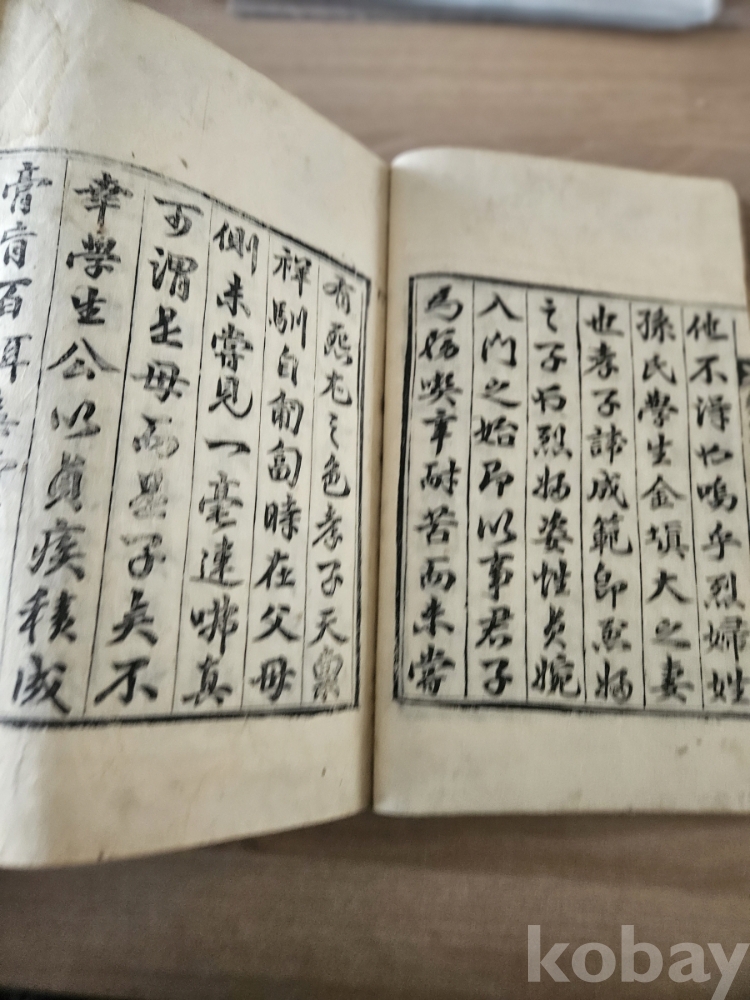 他不得也嗚乎烈婦姓
孫氏學生金塡大之妻
也孝子諱成範卽烈婦
之子而烈婦姿性貞婉
入門之始卽以事君子
爲務喫辛耐苦而未嘗
有 之色孝子天
祥馴自匍匐時在父母
側未嘗見一毫違咈真
可謂是母而是子矣不
幸學生公以貞疾積成
膏肓百
kobay